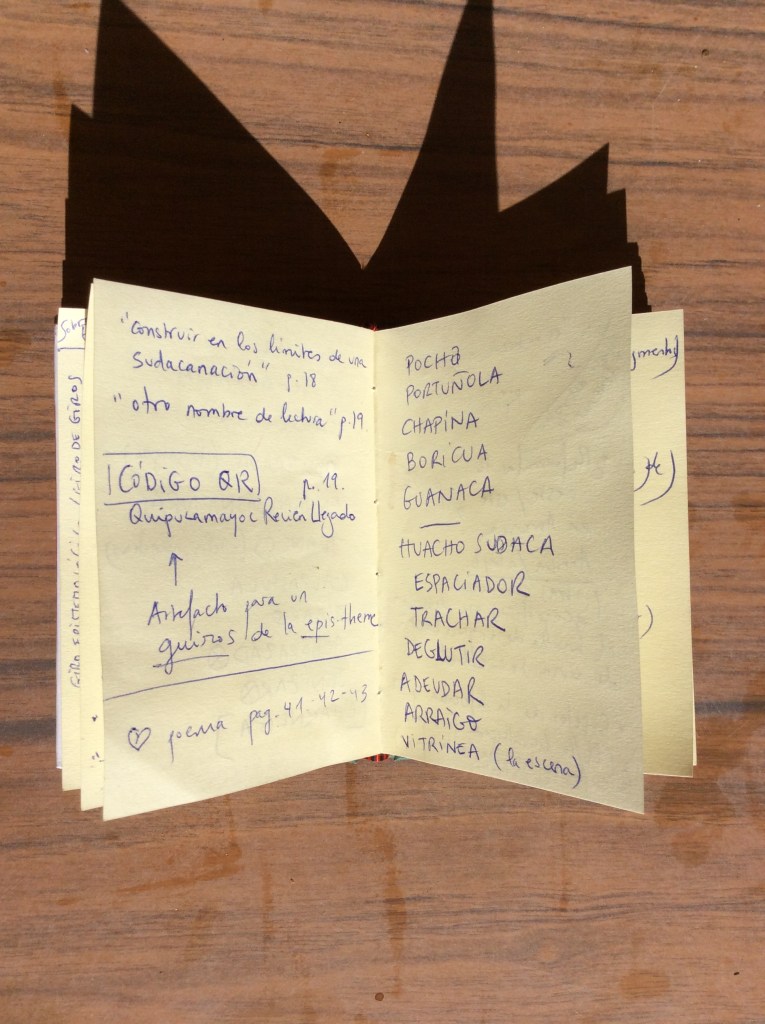 "construir en los límites de una
sudacanación" p.18
"otro nombre de lectura" p.19.
CÓDIGO QR p.19.
Quipucamayoc Recién Llegado
↑
Artefacto para un
guiros de la epis-theme
♡ poema pag. 41-42-43
POCHØ
PORTUÑOLA
CHAPINA
BORICUA
GUANACA
—
HUACHO SUDACA
ESPACIADOR
TRACHAR
DEGLUTIR
ADEUDAR
ARRAIGO
VITRINEA (la escena)